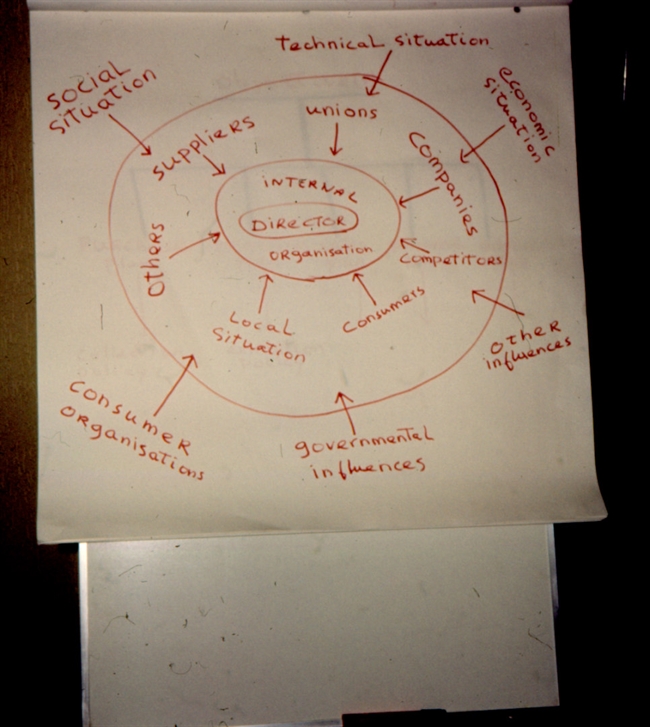 technical situation
social
situation
economic
situation
unions
suppliers
companies
INTERNAL
DIRECTOR
ORGANISATION
Others
Competitors
Local
Situation
Consumers
Other
influences
Consumer
ORGANisations
governmental
influences